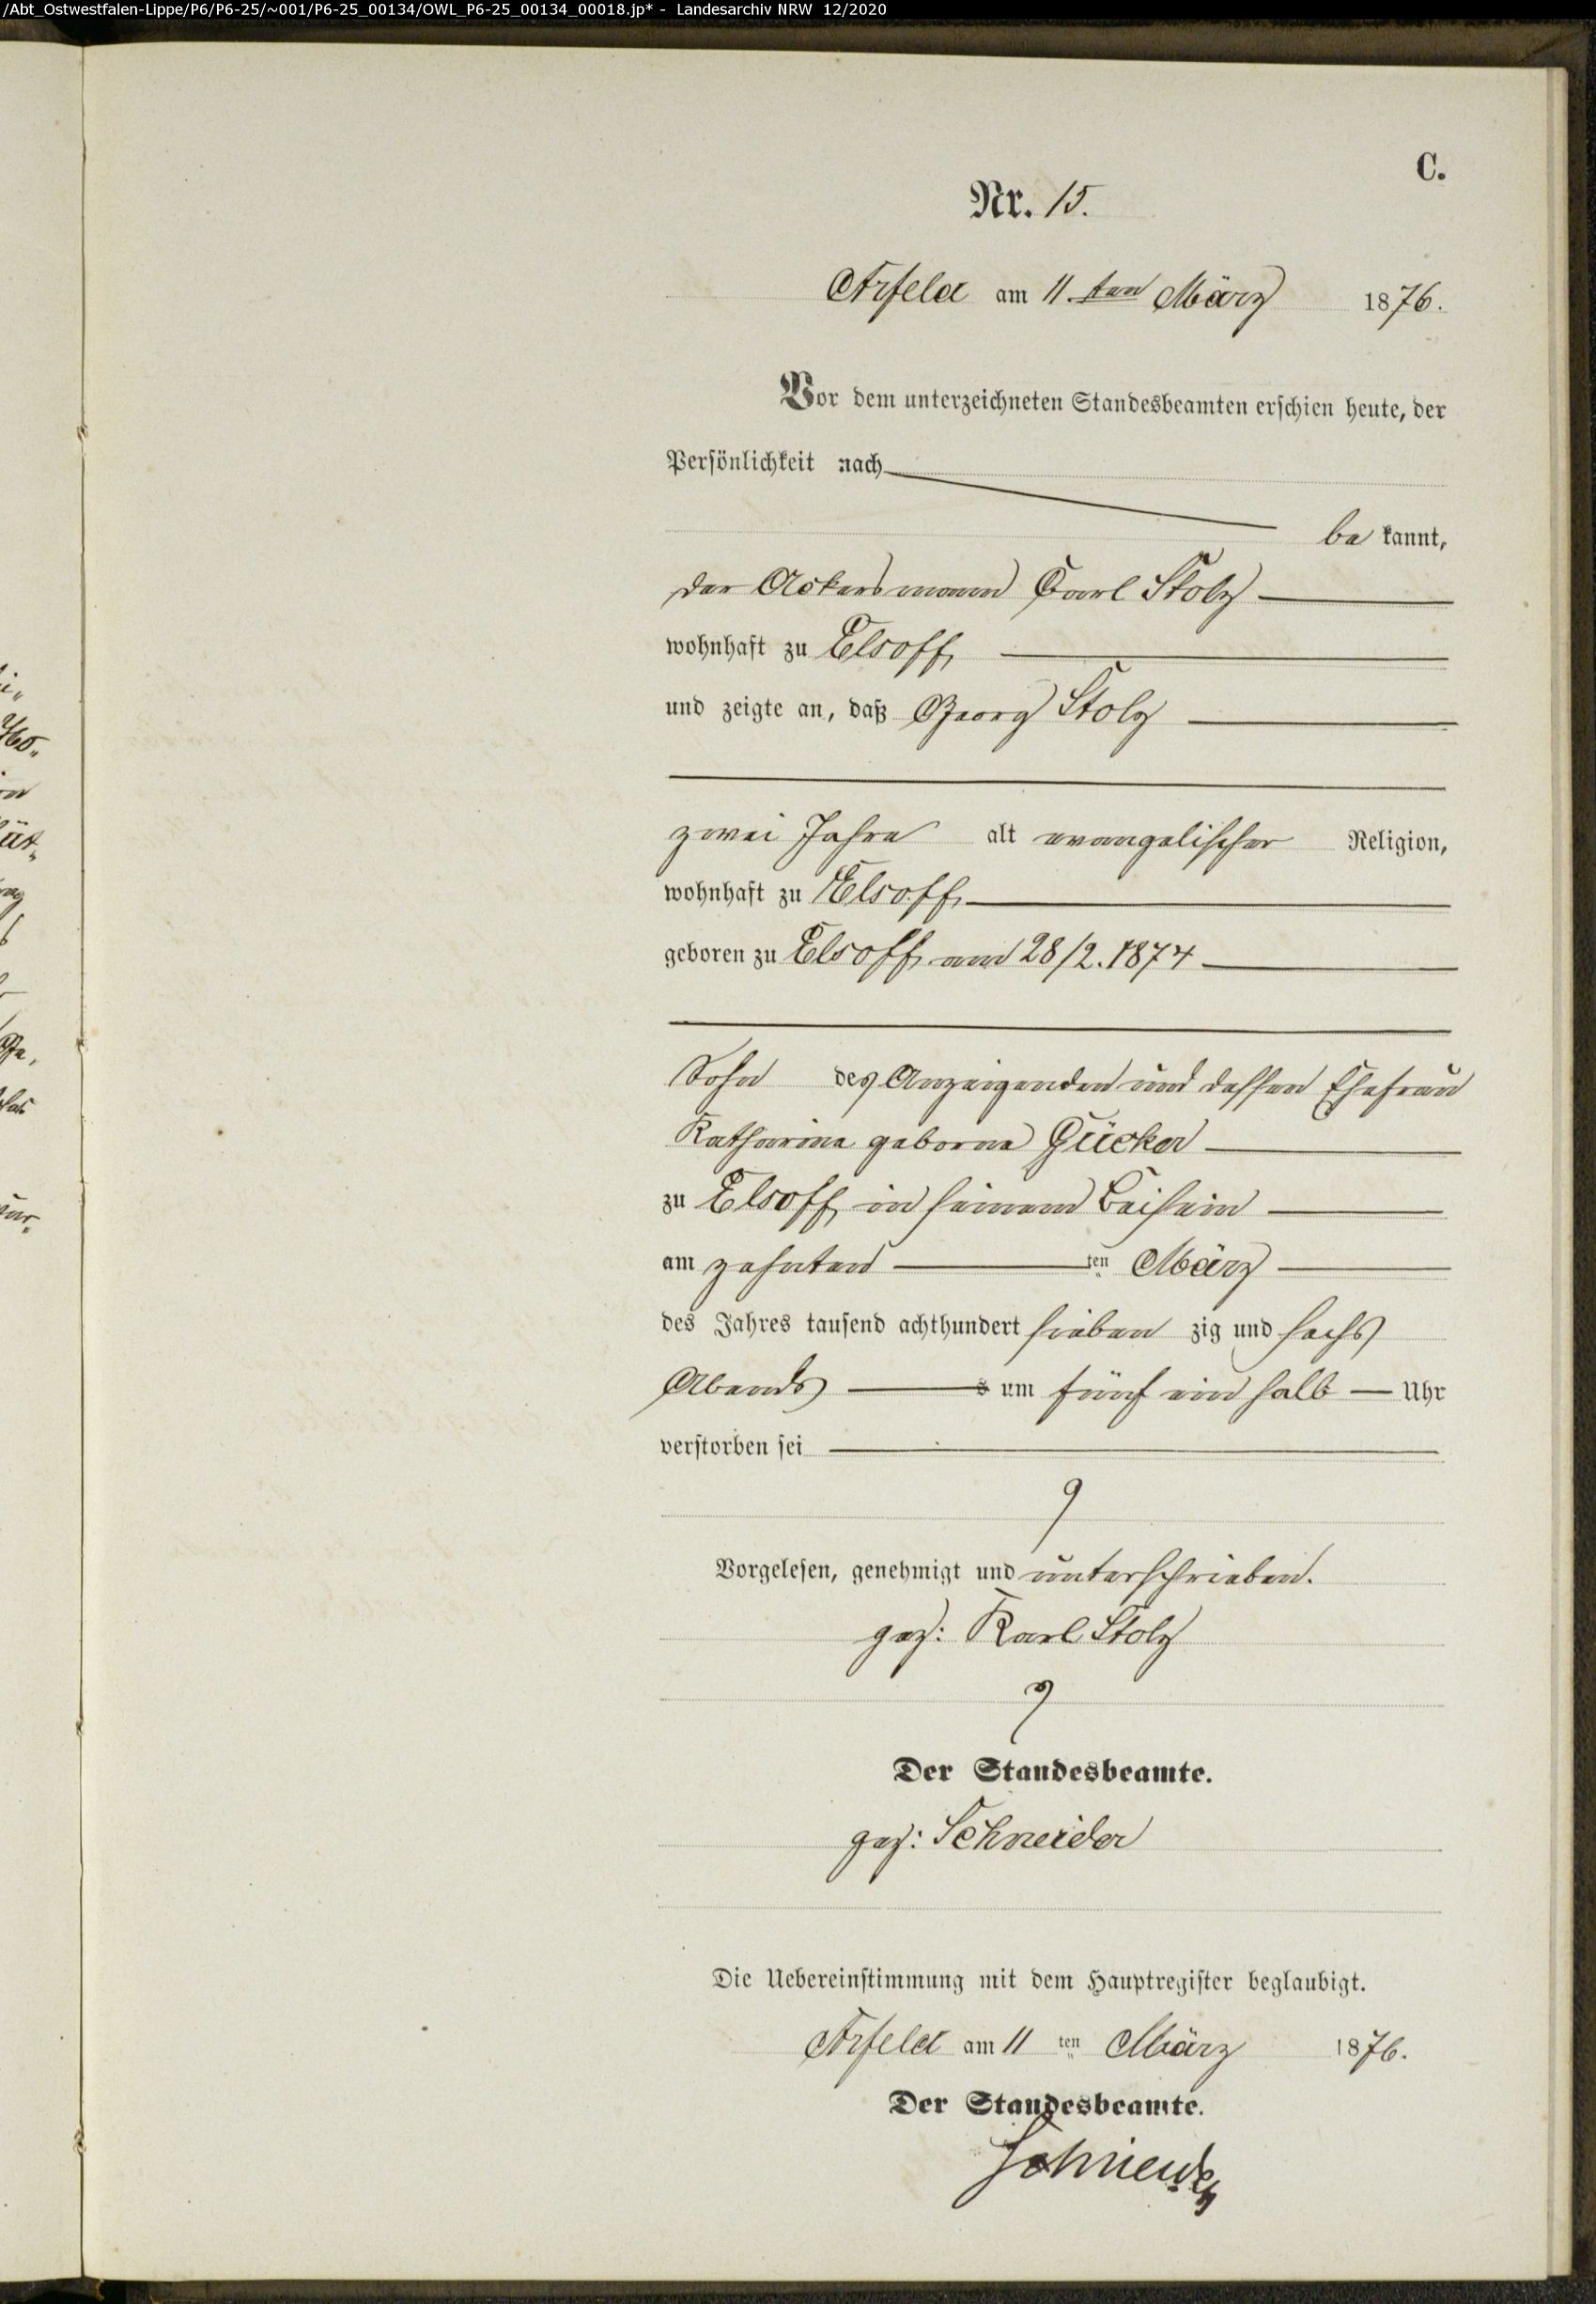 /Abt_Ostwestfalen-Lippe/P6/P6-25/~001/P6-25_00134/OWL_P6-25_00134_00018.jp* - Landesarchiv NRW 12/2020
C.
Nr. 15.
Arfeld am 11ten März 1876.
Vor dem unterzeichneten Standesbeamten erschien heute, der
Persönlichkeit nach
be kannt,
der Ackersmann Carl Stolz
wohnhaft zu Elsoff
und zeigte an, daß Georg Stolz
zwei Jahre alt evangelischer Religion,
wohnhaft zu Elsoff
geboren zu Elsoff am 28/2. 1874
Sohn des Anzeigenden und dessen Ehefrau
Katharina geborne Gücker
zu Elsoff in seinem Beisein
am zehnten ten März
des Jahres tausend achthundert sieben zig und sechs
Abends s um fünf ein halb Uhr
verstorben sei
Vorgelesen, genehmigt und unterschrieben.
gez: Karl Stolz
Der Standesbeamte.
gez: Schneider
Die Uebereinstimmung mit dem Hauptregister beglaubigt.
Arfeld am 11 ten März 1876.
Der Standesbeamte.
Schneider